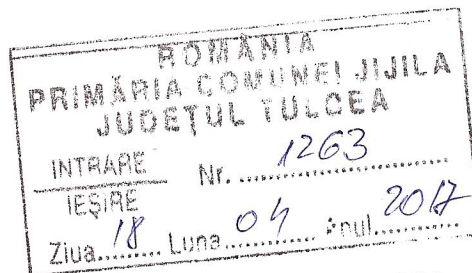 ROMÂNIA
PRIMĂRIA COMUNEI JIJILA
JUDEŢUL TULCEA
INTRARE Nr. 1263
IEŞIRE
Ziua 18 Luna 04 Anul 2017